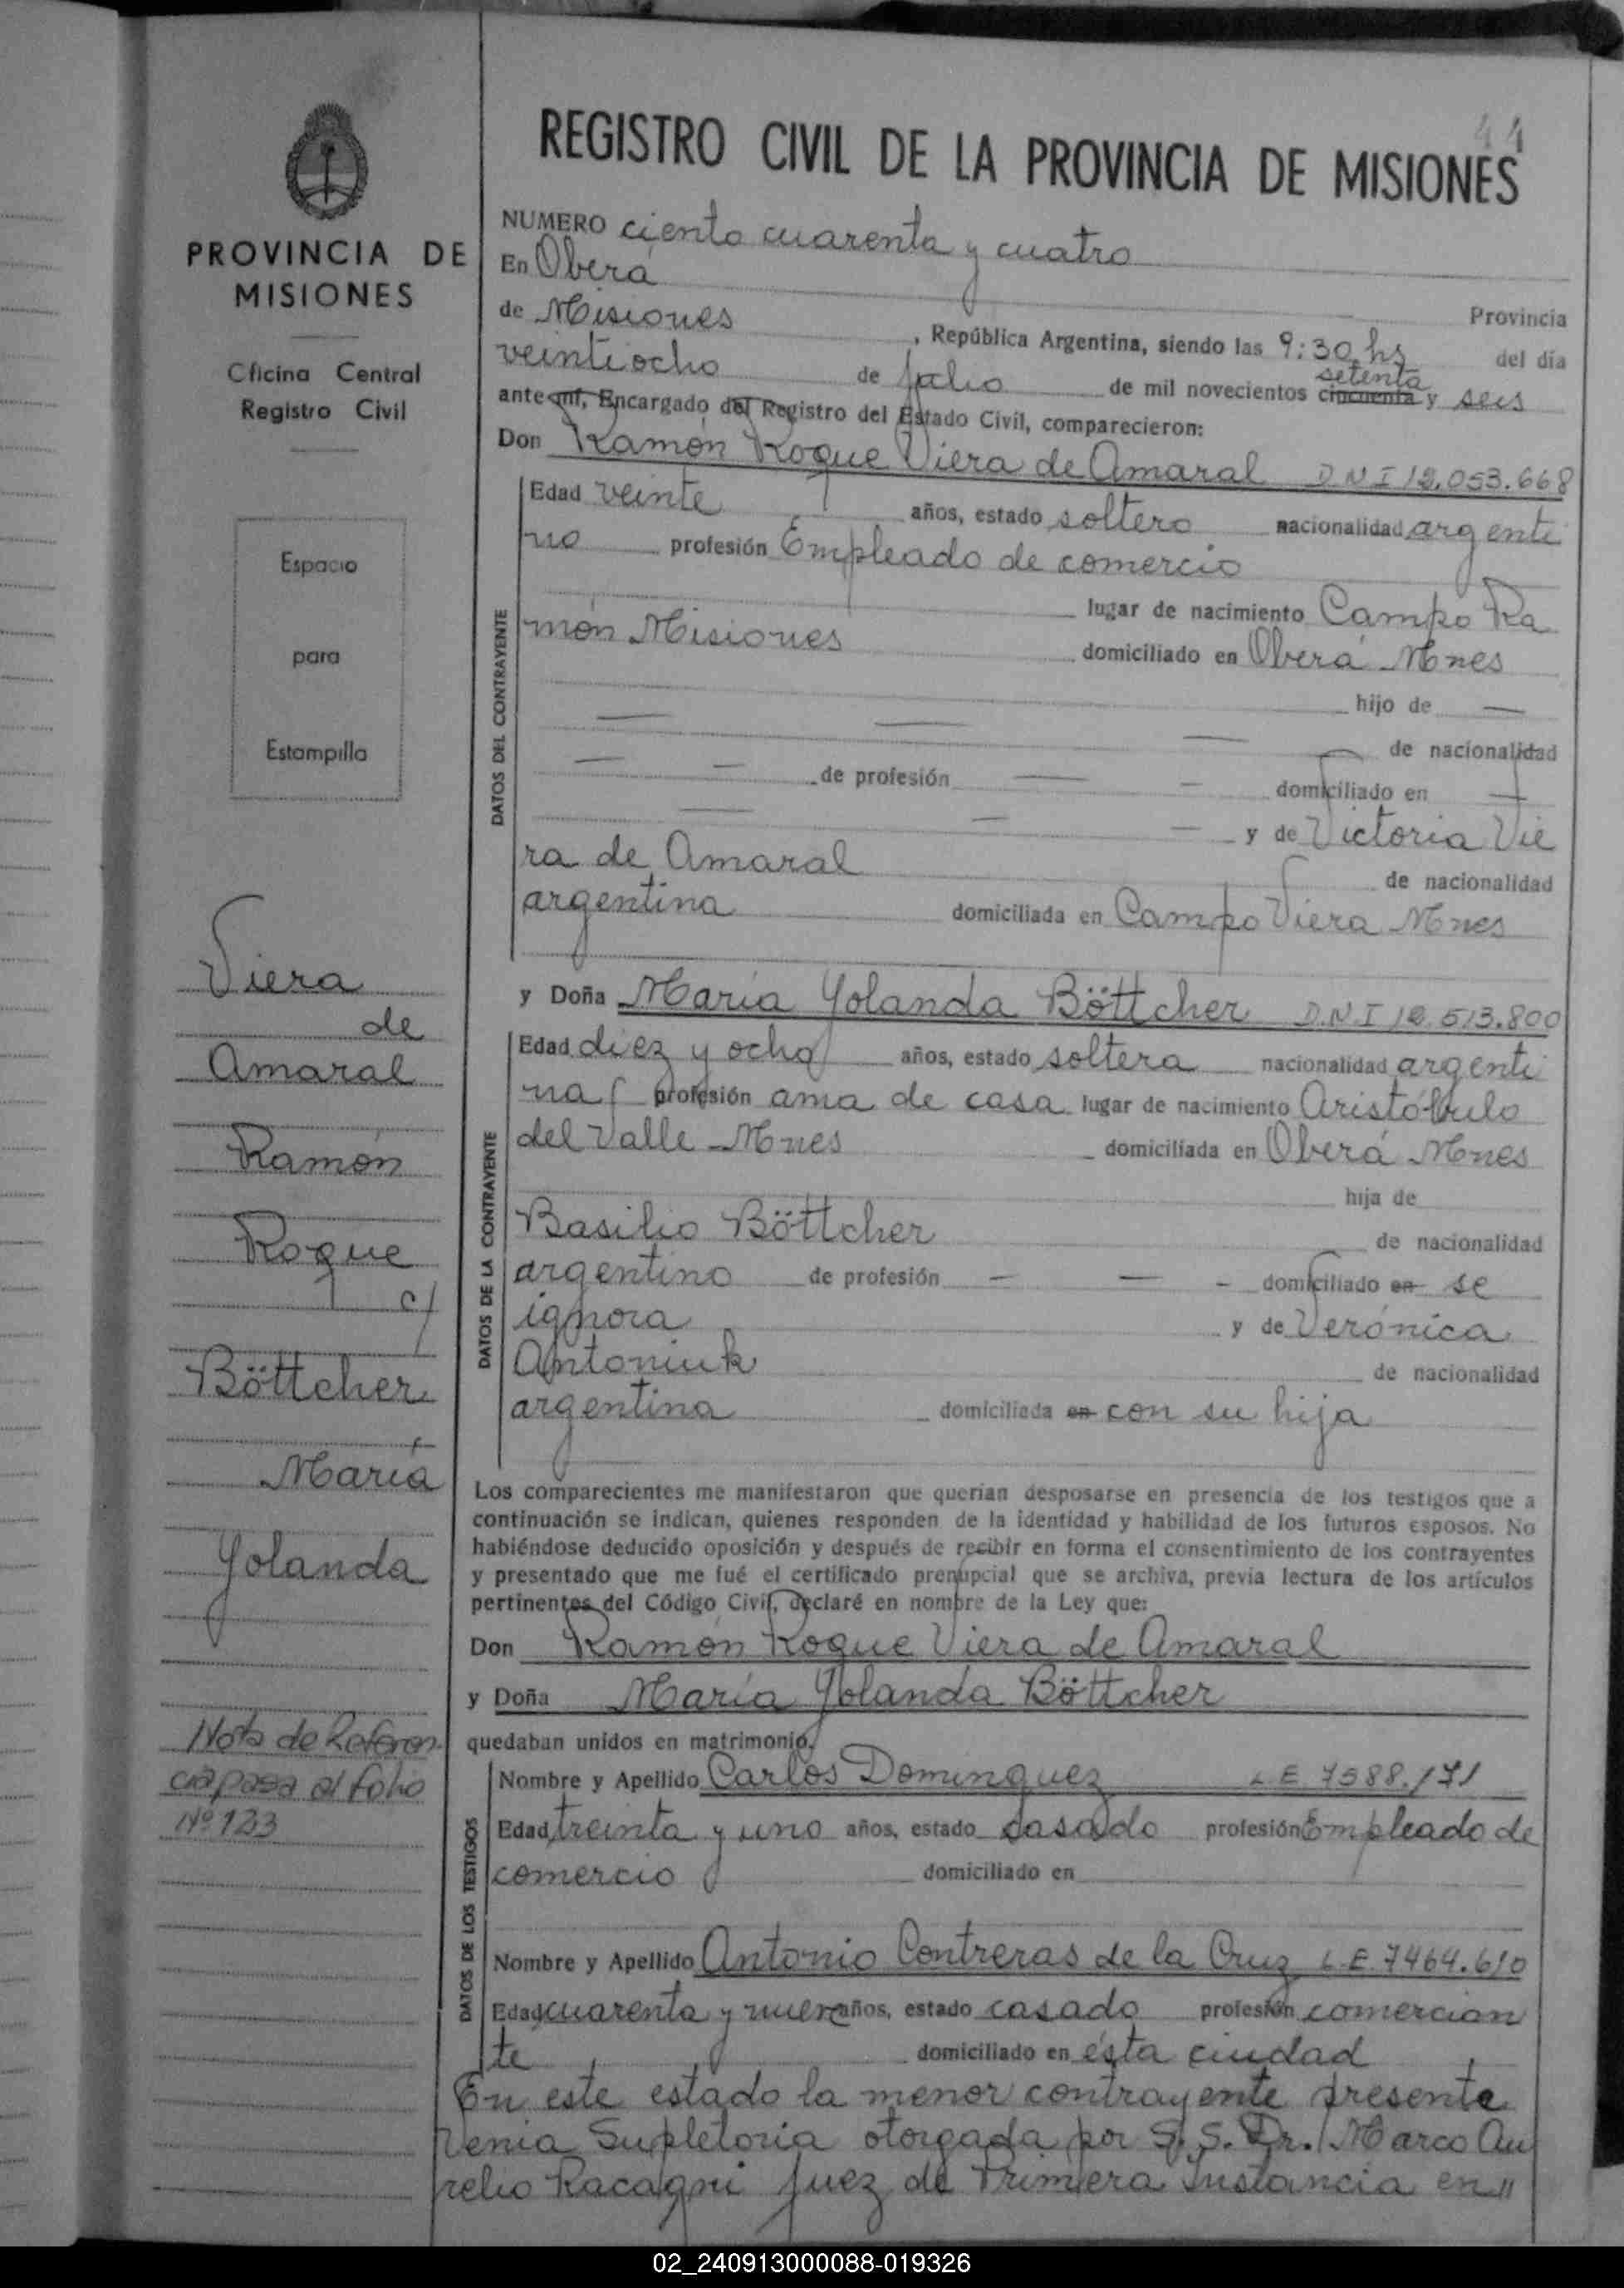 44
REGISTRO CIVIL DE LA PROVINCIA DE MISIONES
PROVINCIA DE
MISIONES
Oficina Central
Registro Civil
Espacio
para
Estampilla
Viera
de
Amaral
Ramón
Roque
c/
Böttcher
María
Yolanda
Nota de Referen
cia pasa al folio
Nº 123
NUMERO ciento cuarenta y cuatro
En Oberá
Provincia
de Misiones, República Argentina, siendo las 9:30 hs del día
setenta
veintiocho de julio de mil novecientos cincuenta y seis
ante mí, Encargado del Registro del Estado Civil, comparecieron:
Don Ramón Roque Viera de Amaral D.N.I 12.053.668
DATOS DEL CONTRAYENTE
Edad veinte años, estado soltero nacionalidad argenti
no profesión Empleado de comercio
lugar de nacimiento Campo Ra
món Misiones domiciliado en Oberá Mnes
hijo de —
— — — de nacionalidad
— — de profesión — — domiciliado en —
— — — y de Victoria Vie
ra de Amaral de nacionalidad
argentina domiciliada en Campo Viera Mnes
y Doña María Yolanda Böttcher D.N.I 12.513.800
DATOS DE LA CONTRAYENTE
Edad diez y ocho años, estado soltera nacionalidad argenti
na profesión ama de casa lugar de nacimiento Aristóbulo
del Valle Mnes domiciliada en Oberá Mnes
hija de
Basilio Böttcher de nacionalidad
argentino de profesión — — - domiciliado en se
ignora y de Verónica
Antoniuk de nacionalidad
argentina domiciliada en con su hija
Los comparecientes me manifestaron que querían desposarse en presencia de los testigos que a
continuación se indican, quienes responden de la identidad y habilidad de los futuros esposos. No
habiéndose deducido oposición y después de recibir en forma el consentimiento de los contrayentes
y presentado que me fué el certificado prenupcial que se archiva, previa lectura de los artículos
pertinentes del Código Civil, declaré en nombre de la Ley que:
Don Ramón Roque Viera de Amaral
y Doña María Yolanda Böttcher
quedaban unidos en matrimonio.
DATOS DE LOS TESTIGOS
Nombre y Apellido Carlos Dominguez L E 7588.171
Edad treinta y uno años, estado casado profesión Empleado de
comercio domiciliado en
Nombre y Apellido Antonio Contreras de la Cruz L.E. 7464.610
Edad cuarenta y nueve años, estado casado profesión comercian
te domiciliado en ésta ciudad
En este estado la menor contrayente presenta
Venia Supletoria otorgada por S. S. Dr. Marco Au
relio Racagni Juez de Primera Instancia en "
02_240913000088-019326